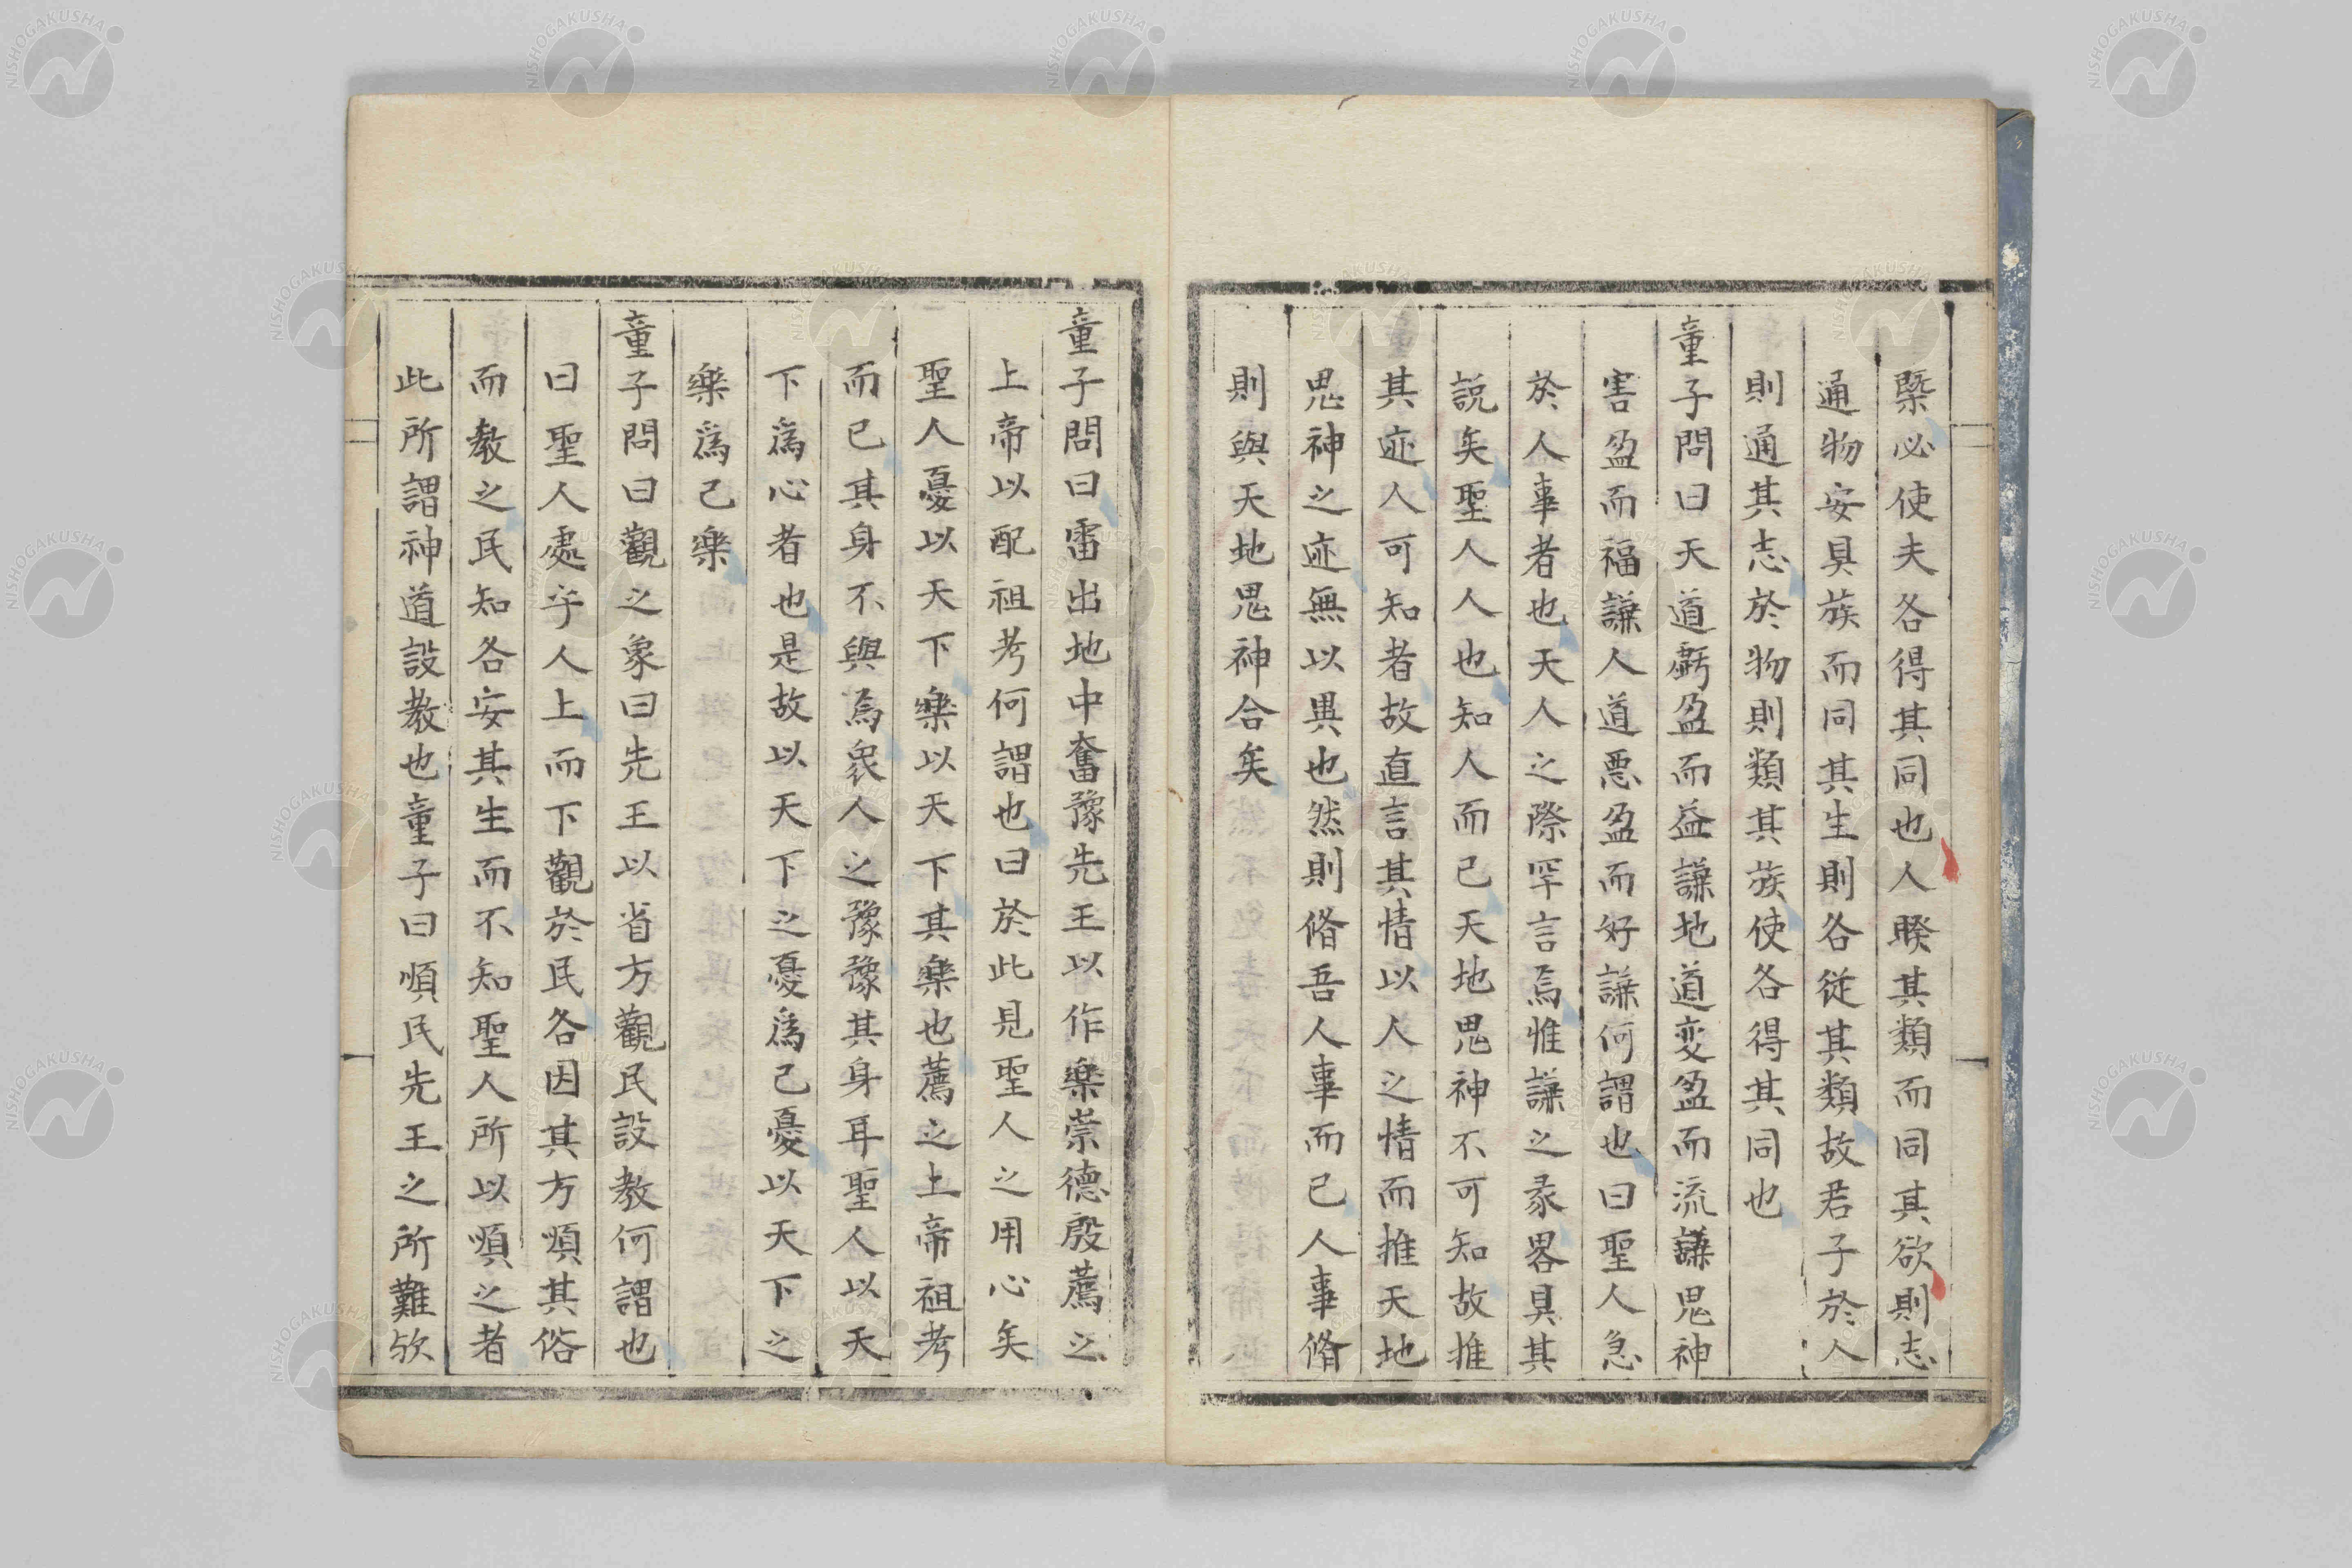 槩必使夫各得其同也人睽其類而同其欲則志
通物安具族而同其生則各從其類故君子於人
則通其志於物則類其族使各得其同也
童子問曰天道虧盈而益謙地道変盈而流謙鬼神
害盈而福謙人道悪盈而好謙何謂也曰聖人急
於人事者也天人之際罕言焉惟謙之彖畧具其
説矣聖人人也知人而已天地鬼神不可知故推
其迹人可知者故直言其情以人之情而推天地
鬼神之迹無以異也然則脩吾人事而已人事脩
則與天地鬼神合矣
童子問曰雷出地中奮豫先王以作樂崇德殷薦之
上帝以配祖考何謂也曰於此見聖人之用心矣
聖人憂以天下樂以天下其樂也薦之上帝祖考
而已其身不與焉衆人之豫豫其身耳聖人以天
下爲心者也是故以天下之憂爲己憂以天下之
樂爲己樂
童子問曰觀之象曰先王以省方觀民設教何謂也
曰聖人處乎人上而下觀於民各因其方順其俗
而教之民知各安其生而不知聖人所以順之者
此所謂神道設教也童子曰順民先王之所難欤
NISHOGAKUSHA